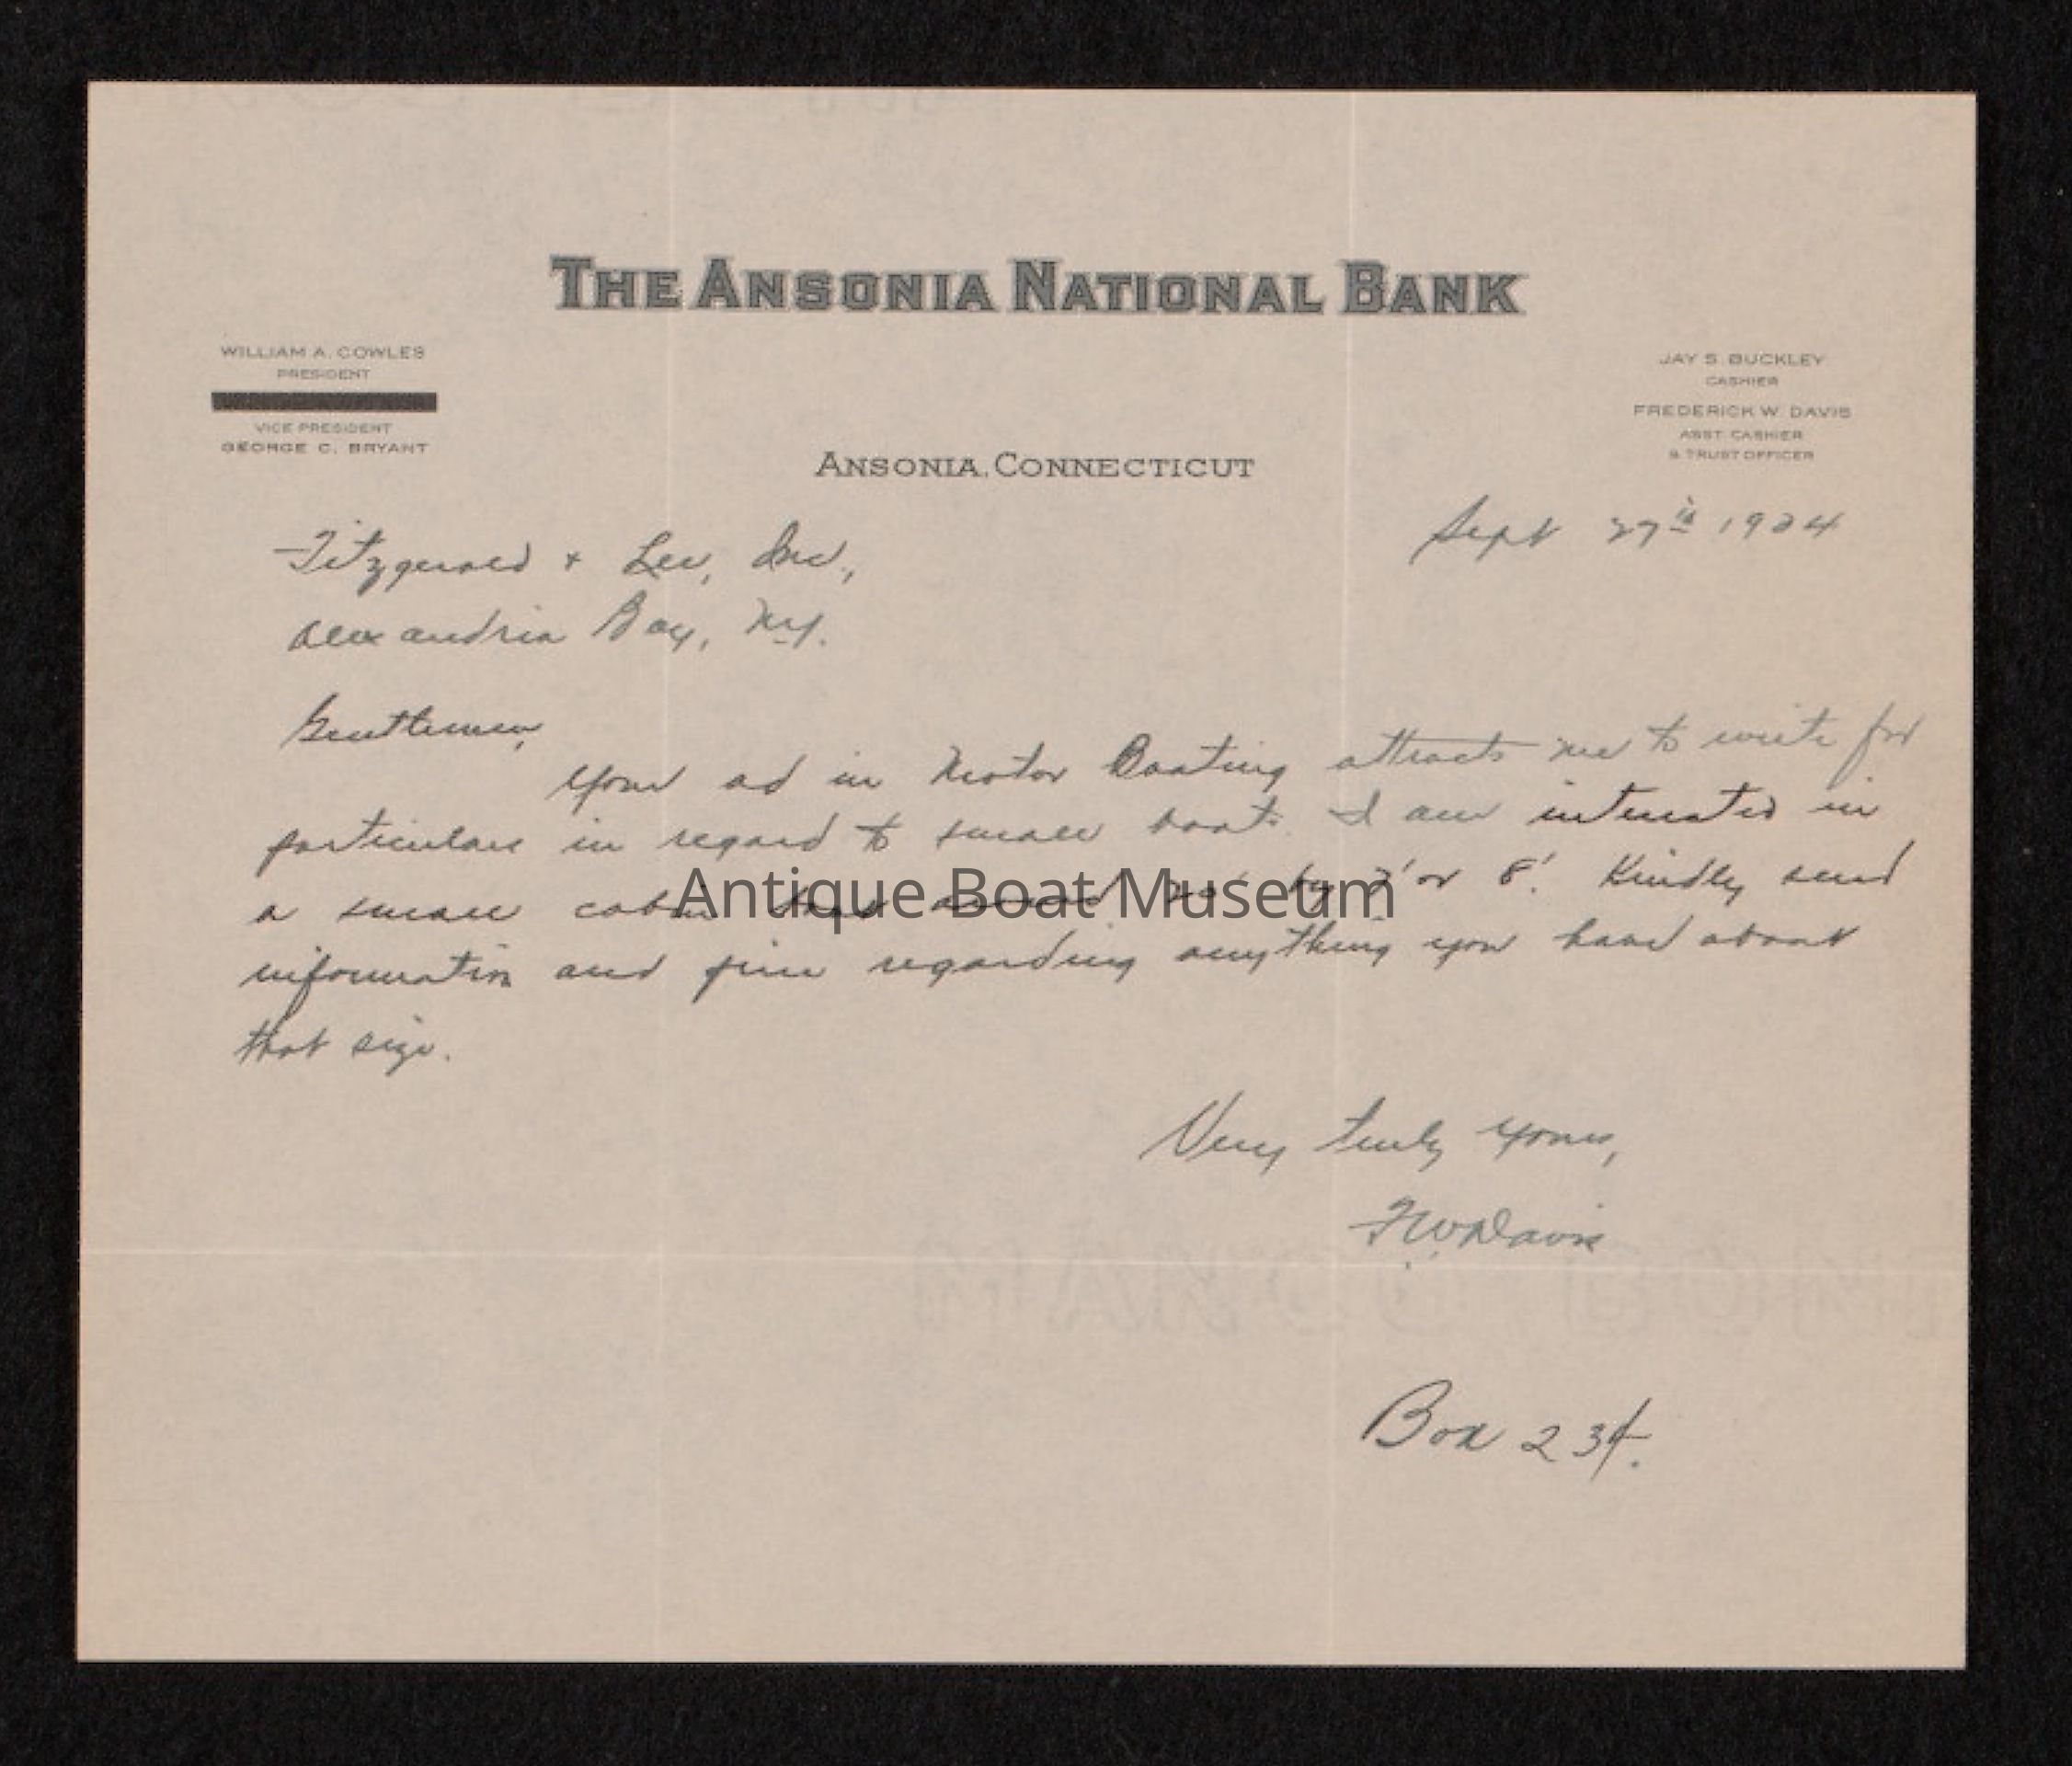 THE ANSONIA NATIONAL BANK
WILLIAM A. COWLES
PRESIDENT
VICE PRESIDENT
GEORGE C. BRYANT
JAY S. BUCKLEY
CASHIER
FREDERICK W. DAVIS
ASST. CASHIER
& TRUST OFFICER
ANSONIA, CONNECTICUT
Sept 27th 1924
Fitzgerald + Lee, Inc.,
Alexandria Bay, N.Y.
Gentlemen,
Your ad in Motor Boating attracts me to write for
particulars in regard to small boats. I am interested in
a small cabin boat around 20' by 7' or 8'. Kindly send
information and price regarding anything you have about
that size.
Antique Boat Museum
Very truly yours,
F.W. Davis
Box 234.